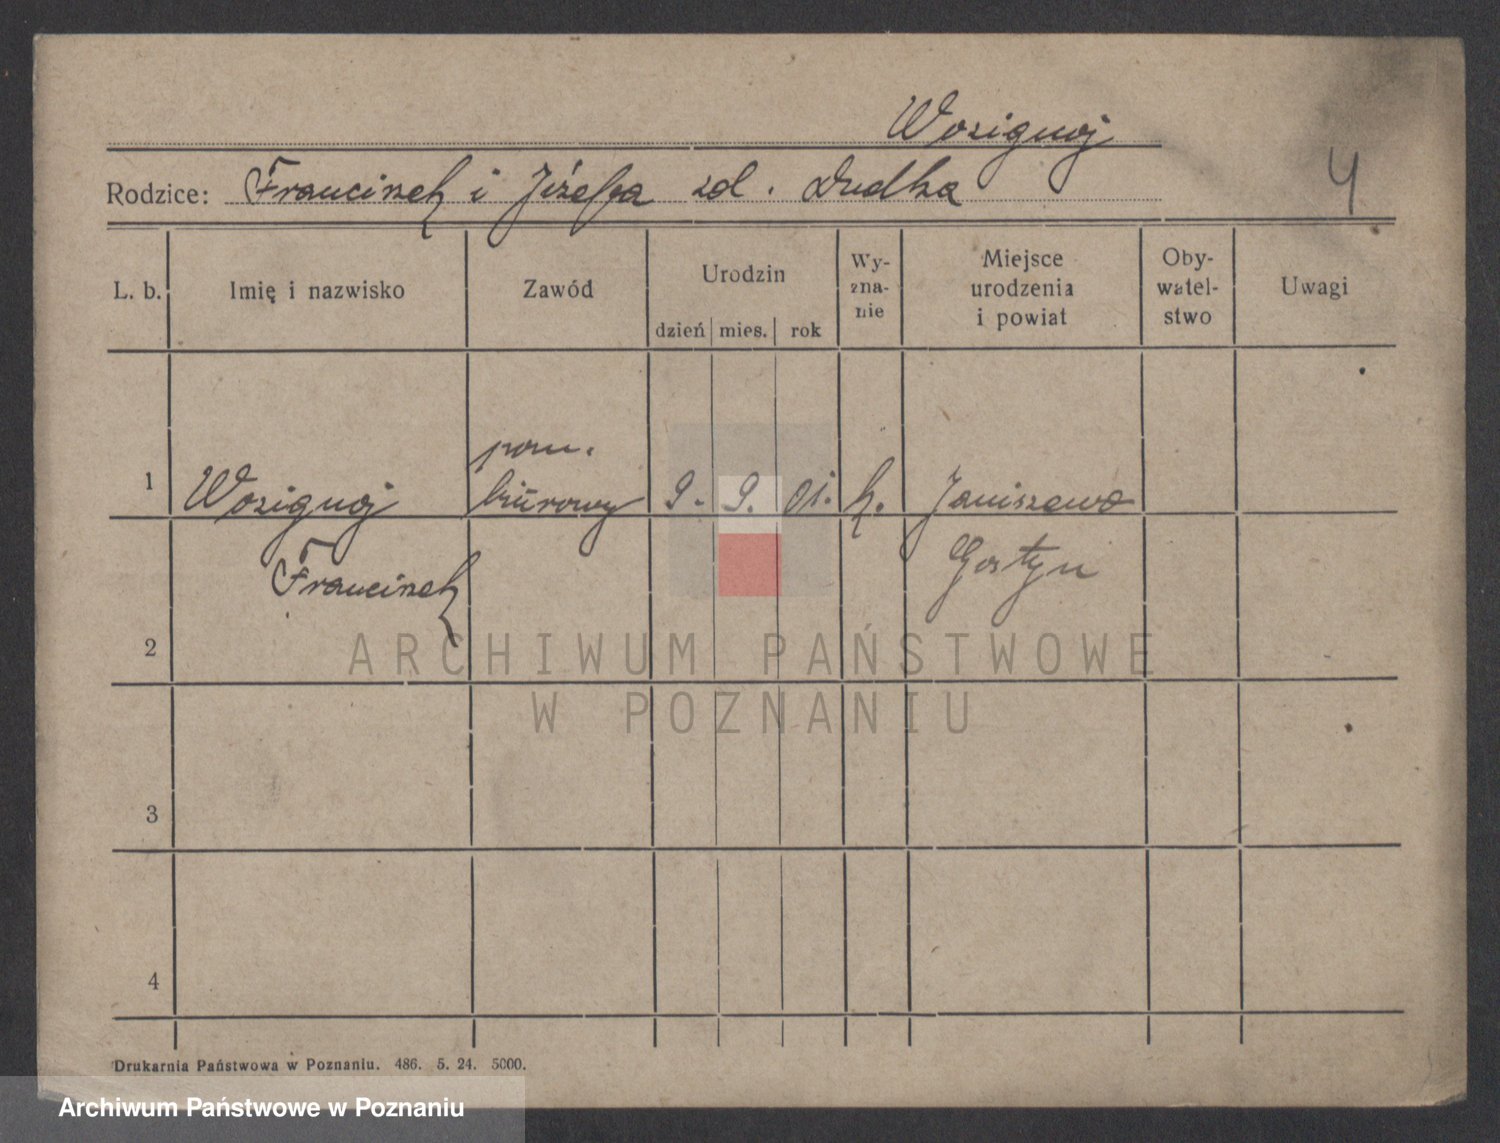 Wozignój
Rodzice: Franciszek i Józefa zd. Dudka
4
L. b. Imię i nazwisko Zawód Urodzin dzień mies. rok Wy-zna-nie Miejsce urodzenia i powiat Oby-watel-stwo Uwagi
pom.
1 Wozignój biurowy 9. 9. 01. k. Janiszewo
Franciszek Gostyn
2
3
4
Drukarnia Państwowa w Poznaniu. 486. 5. 24. 5000.
ARCHIWUM PAŃSTWOWE
W POZNANIU
Archiwum Państwowe w Poznaniu